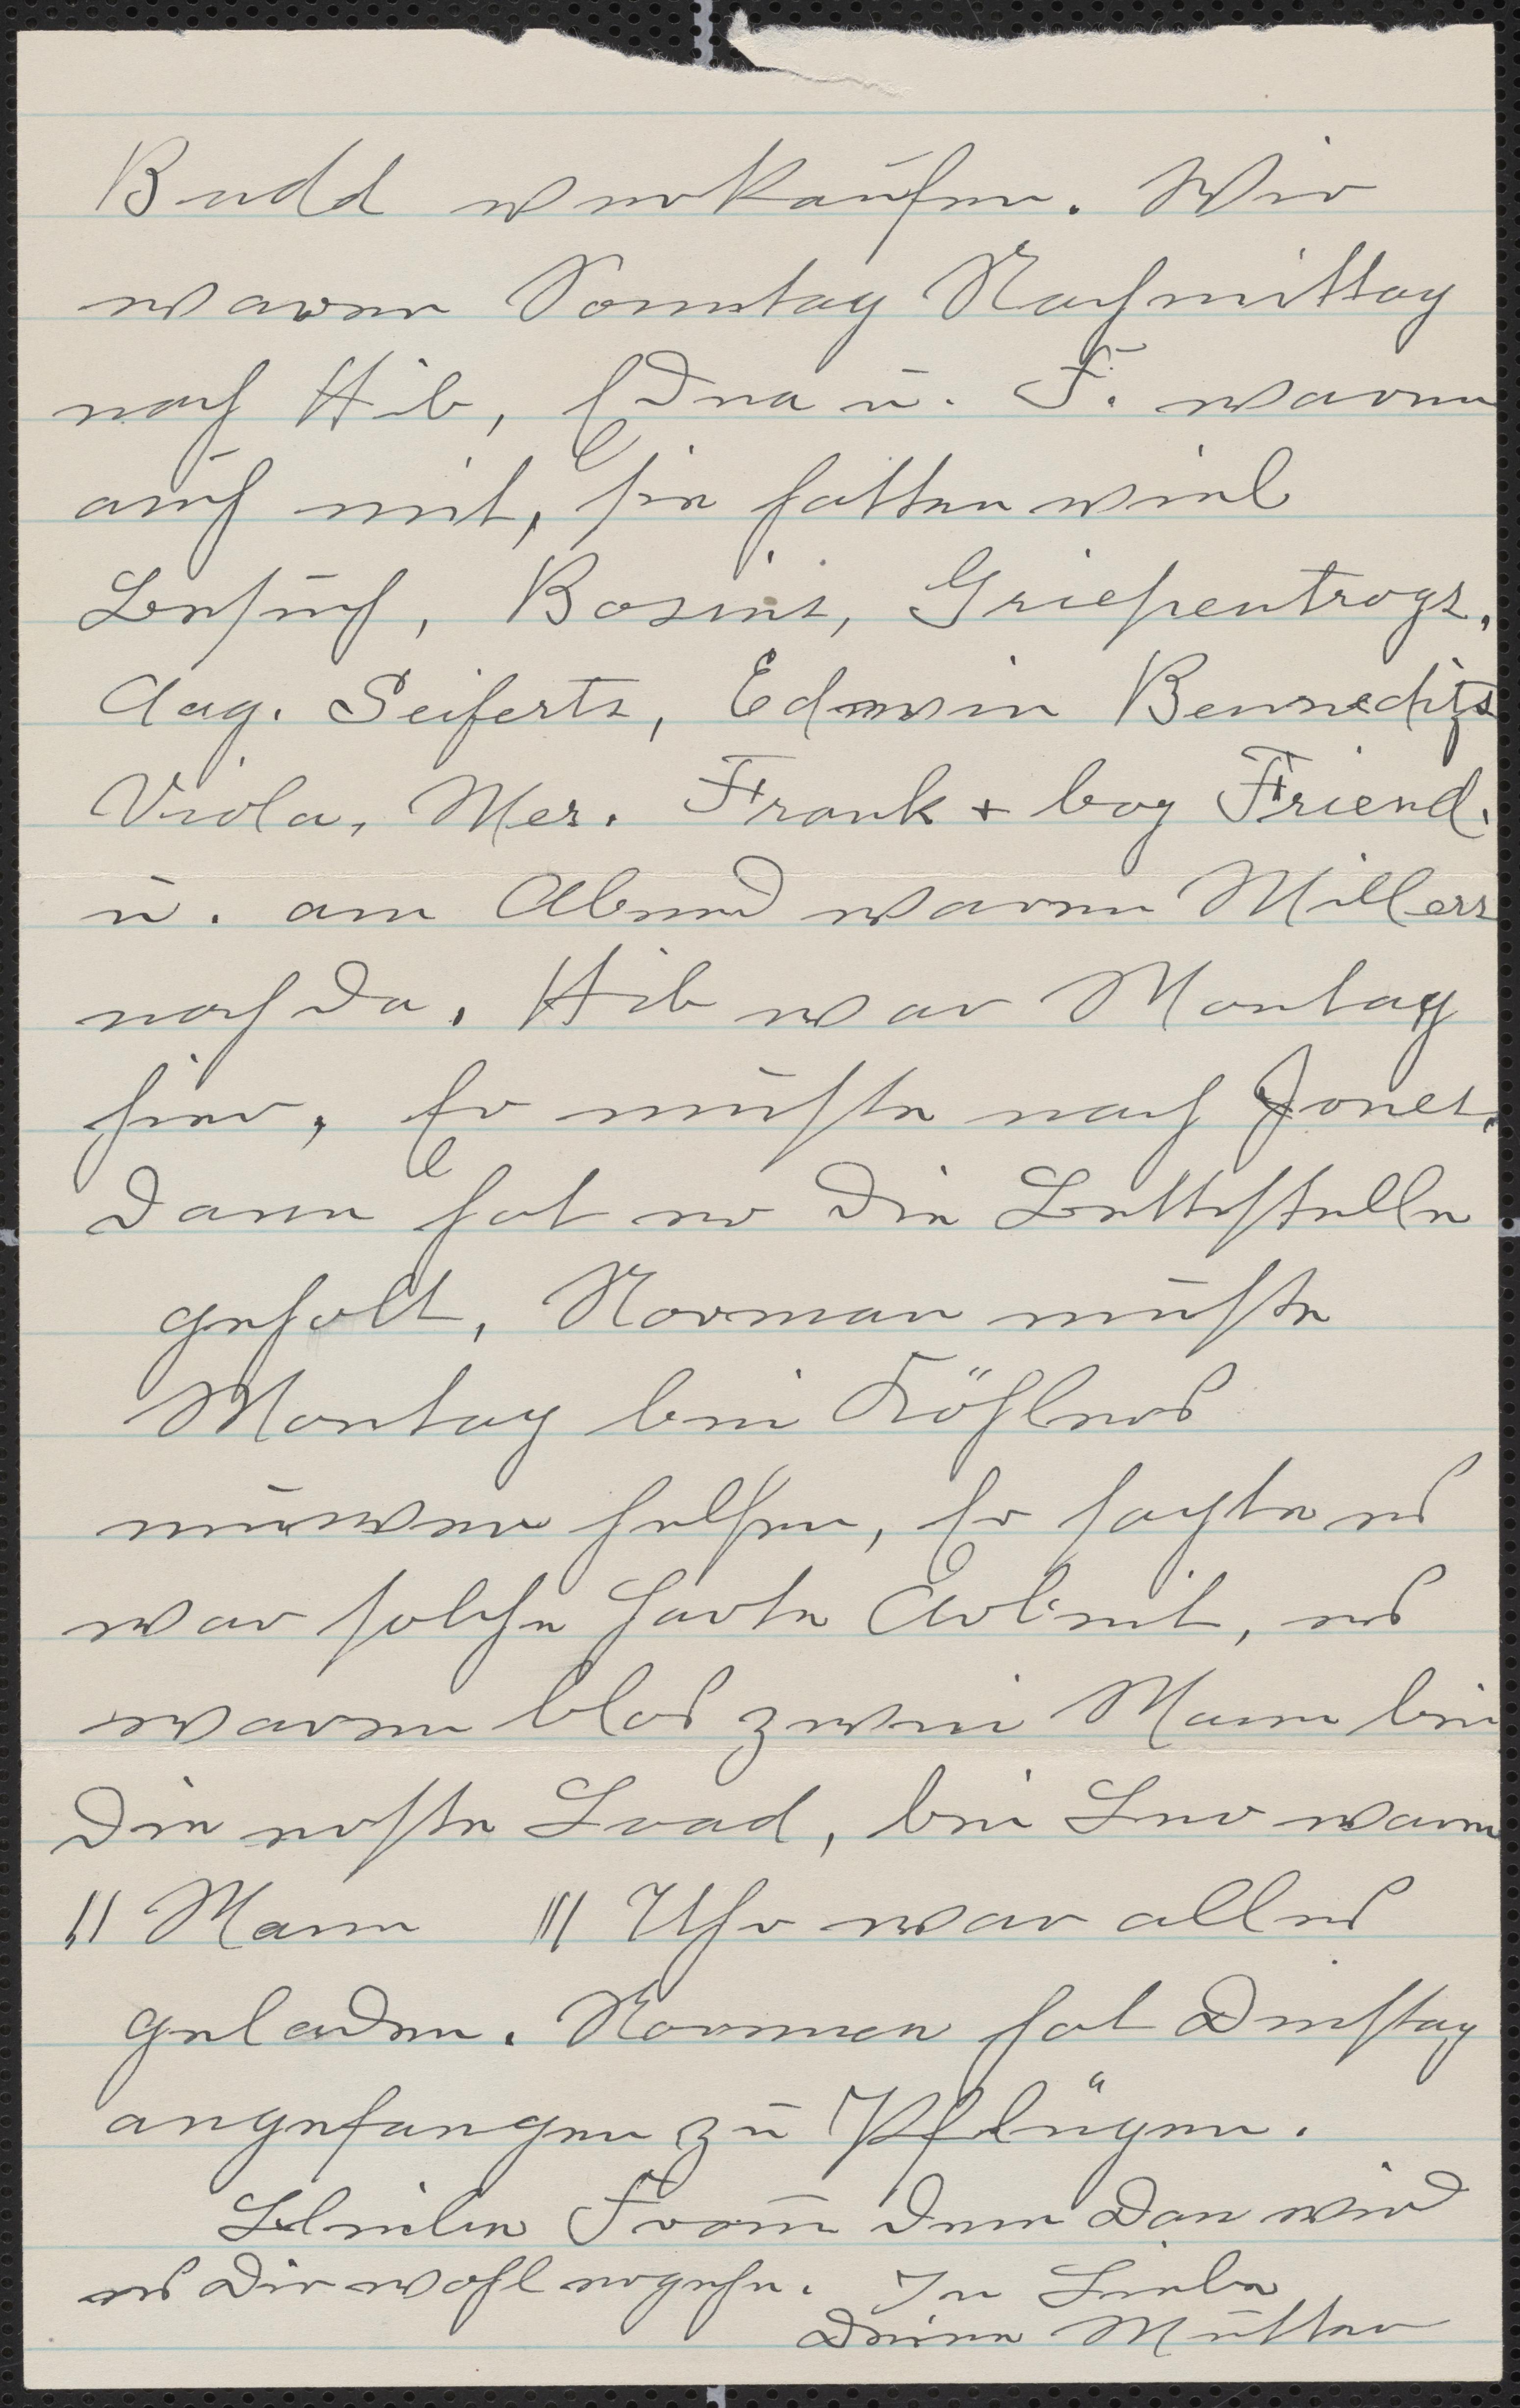 Budd verkaufen. Wir
waren Sonntag Nachmittag
nach Hib, Edna u. F. waren
auch mit, sie hatten viel
Besuch, Bosins, Griepentrogs,
Aug. Seiferts, Edwin Bennedigts
Viola, Mer. Frank + boy Friend.
u. am Abend waren Millers
noch da. Hib war Montag
hier, Er muste nach Jones,
dann hat er die Bettstelle
geholt, Norman muste
Montag bei Köhlers
helfen, Er sagte es
war solche harte Arbeit, es
waren blos zwei Mann bei
die erste Load, bei Leo waren
11 Mann 11 Uhr war alles
geladen. Norman hat Dienstag
angefangen zu Pflügen.
Bleibe Fromm denn dan wird
es Dir wohl ergehe. In Liebe
Deine Mutter